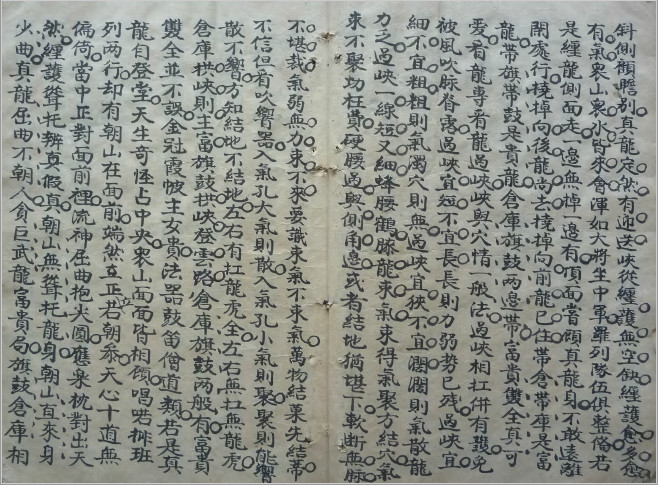 斜側顧瞻別真龍定然有迎送峽從纏護無空缺纏護愈多愈
有氣衆山衆水皆來會渾如大將坐中軍羅列隊伍俱整俻若
是纏龍側面走一邊無棹一邊有頂面當頭真龍身不敢遠離
閑處行橈棹向後龍尚去橈棹向前龍已住帶倉帶庫是富
龍帶旗帶鼓是貴龍倉庫旗鼓兩邊帶富貴雙全真可
愛看龍專看龍過峽峽與穴情一般法過峽相扛併有護免
被風吹脉脊露過峽宜短不宜長長則力弱勢已殘過峽宜
細不宜粗粗則氣濁穴則無過峽宜狹不宜濶濶則氣散龍
力乏過峽一線短又細蜂腰鶴膝龍束氣束得氣聚方結穴氣
束不聚功枉費硬腰過與側角邊或者結地猶堪下軟斷無脉
不堪裁氣弱無力束不來要識束氣不束氣萬物結菓先結蒂
不信但看吹响器入氣孔大氣則散入氣孔小氣則聚聚則能響
散不響方知結地不結地左右有扛龍虎全左右無扛無龍虎
倉庫拱峽則主富旗鼓拱峽登雲路倉庫旗鼓两般有富貴
雙全並不誤金冠霞帔主女貴法器鼓笛僧道類若是真
龍自登堂天生奇怪占中央衆山面面皆相顧唱喏排班
列两行却有朝山在面前端然立正若朝叅天心十道無
偏倚當中正對面前裡流神屈曲抱火圓應樂枕對出天
然纏護聳托辨真假真朝山無聳托龍身朝山直來身
少曲真龍屈曲不朝人貪巨武龍富貴局旗鼓倉庫相